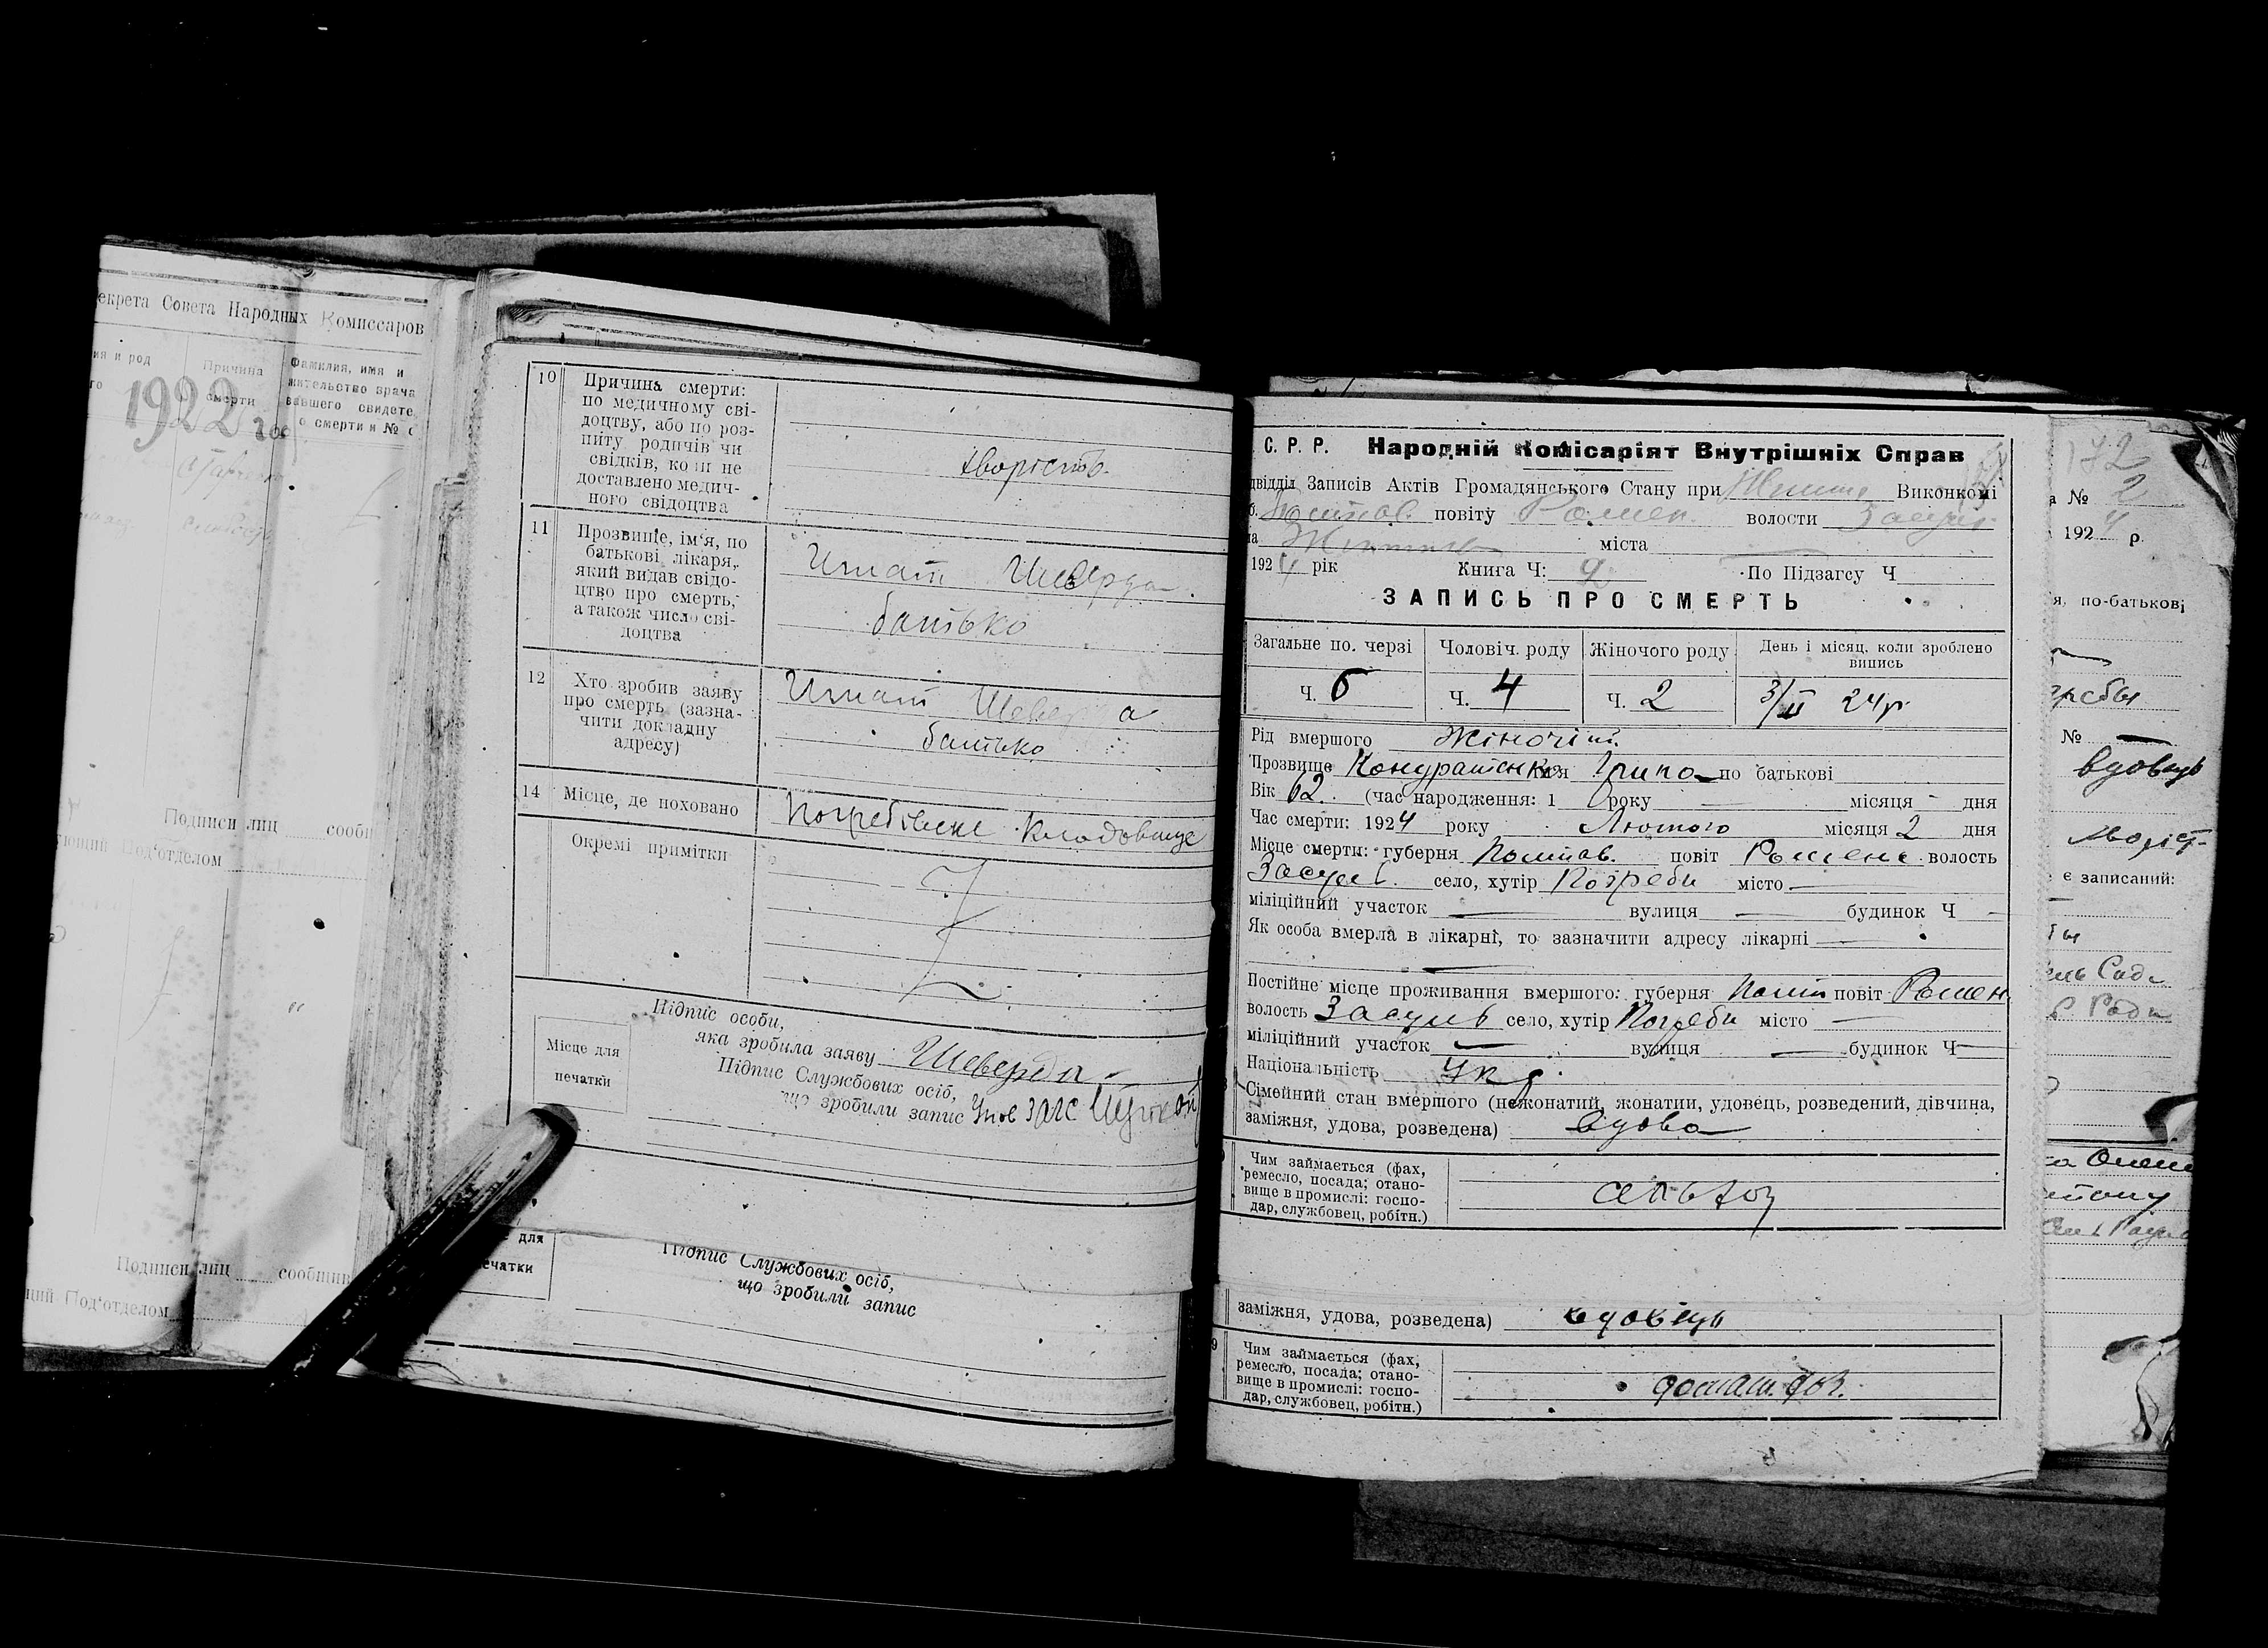 екрета Совета Народных Комиссаров
ия и род
го
Причина
смерти
Фамилия, имя и
жительство врача
вавшего свидете
о смерти и № с
1922 го
Подписи лиц сооби
ующий Под'отделом
Подписи лиц сообщив
ций Под'отделом
10 Причина смерти:
по медичному сві-
доцтву, або по роз-
питу родичів чи
свідків, коли не
доставлено медич-
ного свідоцтва
хворість.
11 Прозвище, ім'я, по
батькові лікаря,
який видав свідо-
цтво про смерть,
а також число сві-
доцтва
Игнат Шеверда
батько
12 Хто зробив заяву
про смерть (зазна-
чити докладну
адресу)
Игнат Шеверда
батько
14 Місце, де поховано
Погребівске Кладовище
Окремі примітки
Підпис особи,
яка зробила заяву Шеверда
Місце для
печатки
Підпис Службових осіб,
що зробили запис ЗАГС
для
ечатки
Підпис Службових осіб,
що зробили запис
С. Р. Р. Народній Комісаріят Внутрішніх Справ
двідділ Записів Актів Громадянського Стану при Виконкомі
б. Полтав. повіту Ромен. волости Засул.
міста
1924 рік Книга Ч: 2 По Підзагсу Ч
ЗАПИСЬ ПРО СМЕРТЬ
Загальне по. черзі Чоловіч. роду Жіночого роду День і місяц, коли зроблено
випись
Ч. 6 Ч. 4 Ч. 2 3/II 24 р.
Рід вмершого Жіночий.
Прозвище Кондратенко ім'я по батькові
Вік 62. (час народження: 1 року — місяця - дня
Час смерти: 1924 року Лютого місяця 2 дня
Місце смерти: губерня Полтав. повіт Роменс. волость
Засулів. село, хутір Погреби місто —
міліційний участок — вулиця — будинок Ч —
Як особа вмерла в лікарні, то зазначити адресу лікарні —
—
Постійне місце проживання вмершого: губерня Полт повіт Ромен.
волость Засулів село, хутір Погреби місто —
міліційний участок — вулиця — будинок Ч —
Національність Укр.
Сімейний стан вмершого (нежонатий, жонатии, удовець, розведений, дівчина,
заміжня, удова, розведена) вдова
Чим займається (фах,
ремесло, посада; отано-
вище в промислі: госпо-
дар, службовец, робітн.)
заміжня, удова, розведена) вдовець
9 Чим займається (фах,
ремесло, посада; отано-
вище в промислі: госпо-
дар, службовец, робітн.)
172
а № 2
1924 р.
я, по-батькові
гребы
№ —
вдовець
є записаний: